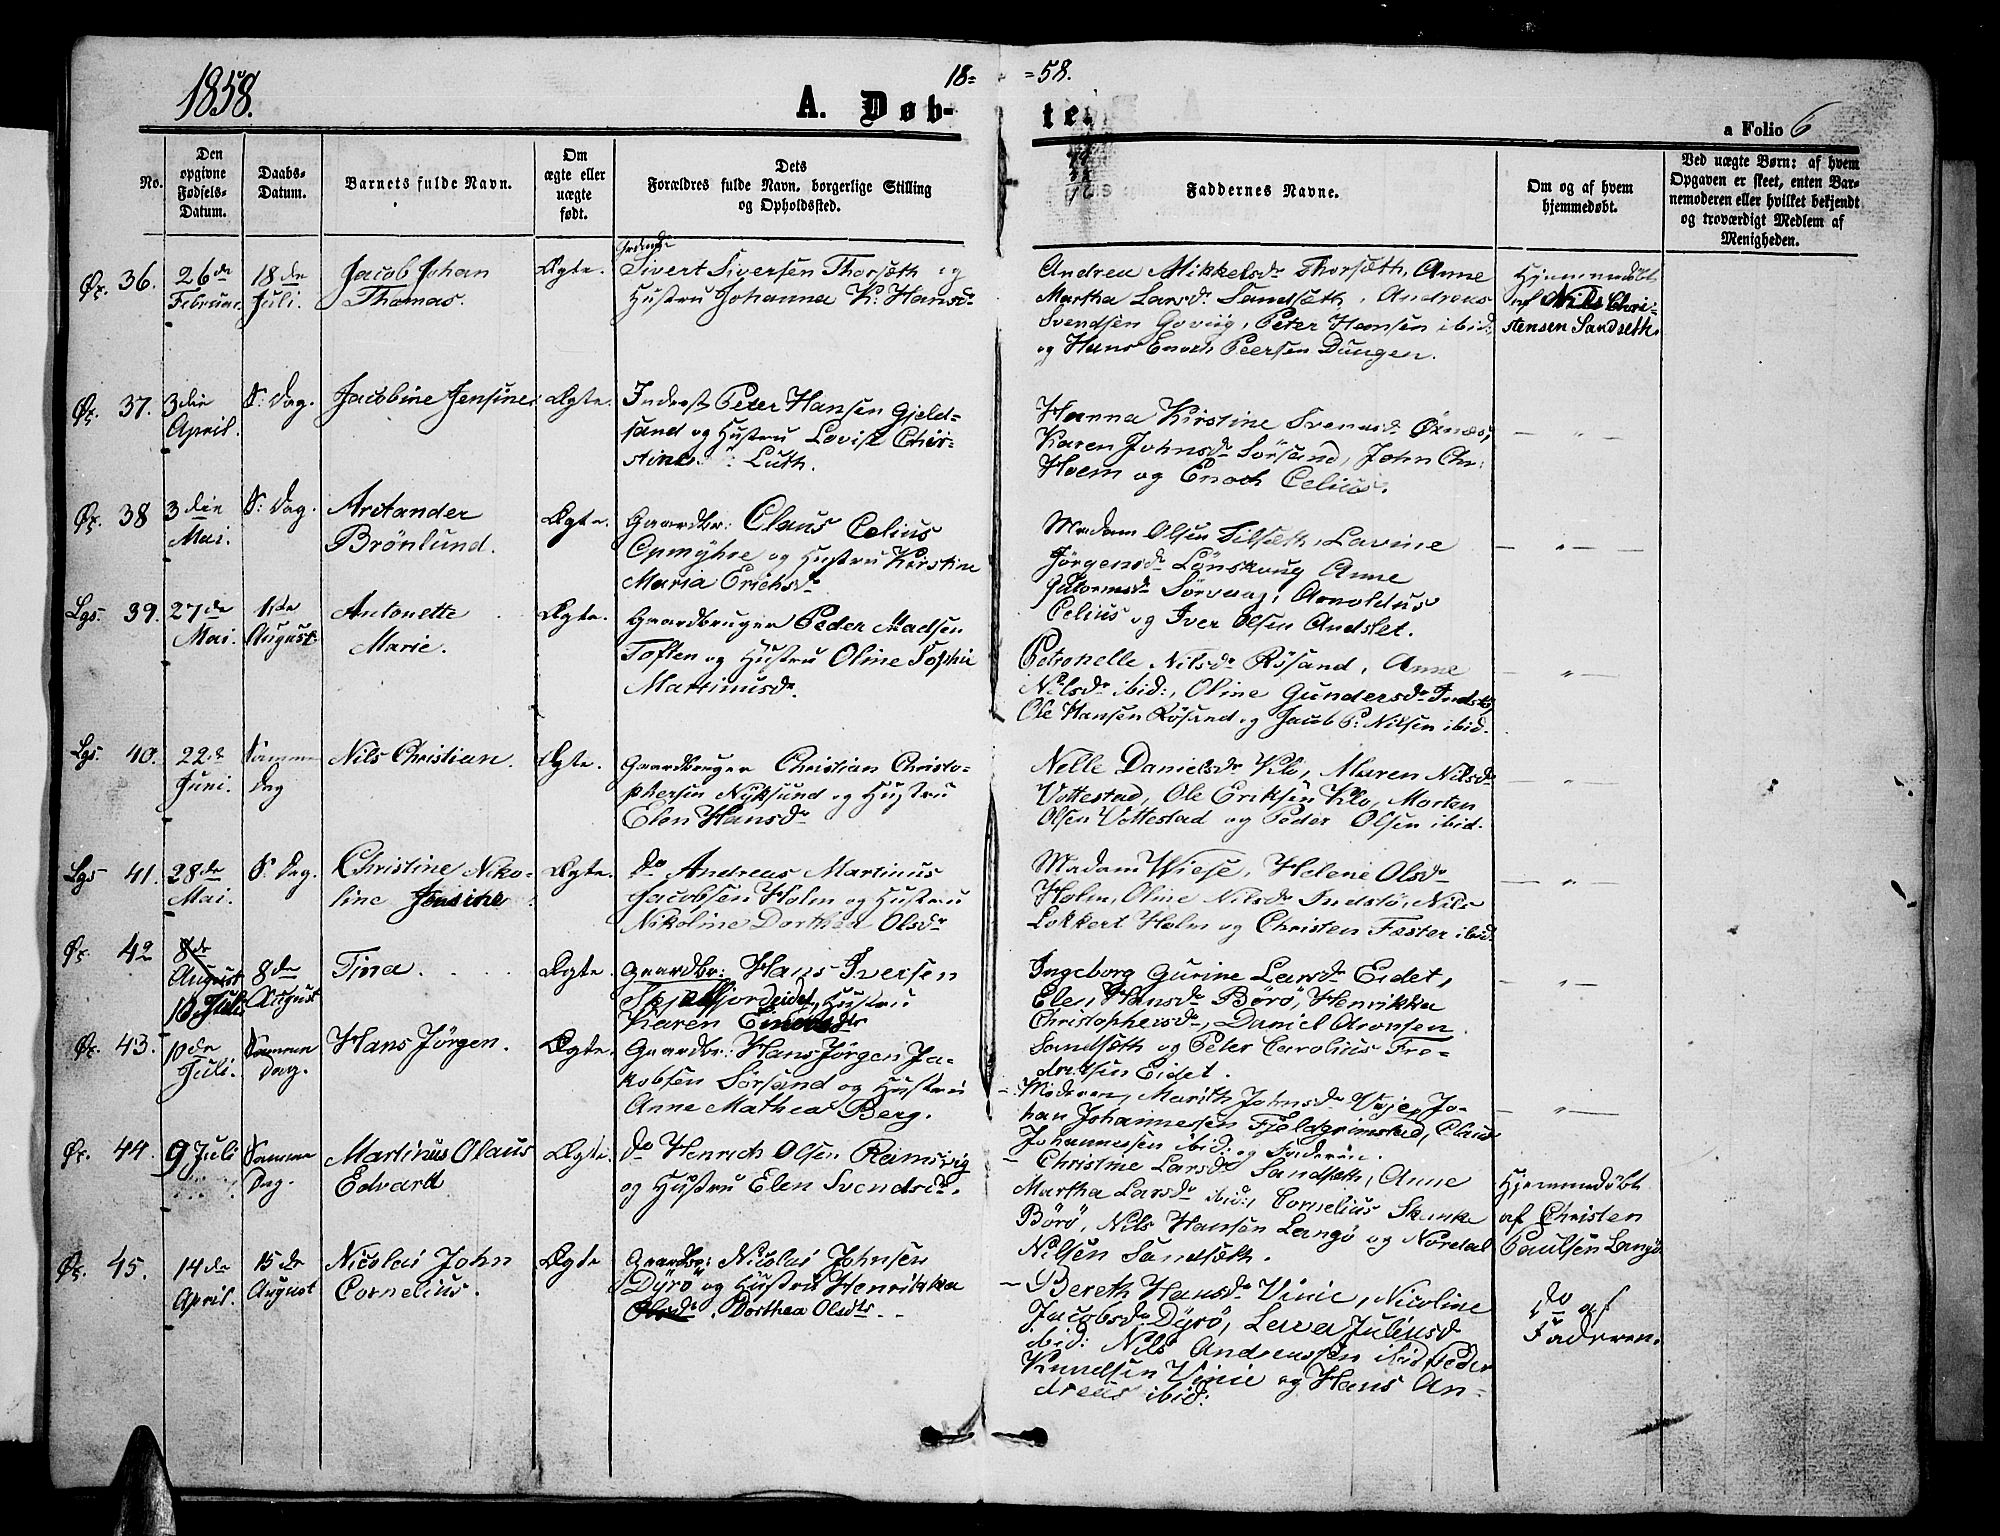 1858.
18=
=58.
A. Døb-
te.
a Folio 6
No.
Den opgivne Fødsels-Datum.
Daabs-Datum.
Barnets fulde Navn.
Om ægte eller uægte født.
Dets
Forældres fulde Navn, borgerlige Stilling
og Opholdssted.
Faddernes Navne.
Om og af hvem
hjemmedøbt.
Ved uægte Børn: af hvem
Opgaven er skeet, enten Bar-
nemoderen eller hvilket bekjendt
og troværdigt Medlem af
Menigheden.
Øx. 36. 26de Februar. 18de Juli.
Jacob Johan
Thomas.
Ægte.
Sivert Siversen Thorsæth og
Hustru Johanna K. Hansdr
Andrea Mikkelsdr Thorsæth, Anne
Martha Larsdr Sandsæth, Andreas
Svendsen Goviig, Peter Hansen ibid:
og Hans Enoch Peersen Dungen.
Hjemmedöbt
af Nils Chri-
stensen Sandseth.
Øx. 37. 3die April. S: Dag.
Jacobine Jensine.
Ægte.
Inderst Peter Hansen Gjeld-
sand og Hustru Lovise Chir-
stine Luth.
Hanna Kirstine Svensdr Øxnæs,
Karen Johnsdr Sörsand, John Chr:
Hoem og Enoch Celius.
— " —
Øx. 38 3die Mai. S: Dag.
Arctander
Brönlund.
Ægte.
Gaardbr: Claus Celius
Opmÿhre og Hustru Kirstine
Maria Erichsdr
Madam Olsen Tilsæth, Lavine
Jörgensdr Lönskoug Anne
Sörvaag, Arnoldus
Celius og Iver Olsen Andslet.
— " —
Lgs. 39. 27de Mai. 1ste August.
Antonette
Marie.
Ægte.
Gaardbruger Peder Madsen
Toften og Hustru Oline Sophie
Martinusdr
Petronelle Nilsdr Rösand, Anne
Nilsdr ibid:, Oline Gundersdr Indstö,
Ole Hansen Rösand og Jacob P. Nilsen ibid.
— " —
Lgs. 40. 22de Juni. Samme Dag
Nils Christian.
Ægte.
Gaardbruger Christian Christo-
phersen Nÿksund og Hustru
Elen Hansdr
Nelle Danielsdr Klo, Maren Nilsdr
Vottestad, Ole Eriksen Klo, Morten
Olsen Vottestad og Peder Olsen ibid.
— " —
Lgs 41. 28de Mai. S: Dag.
Christine Niko-
line Jensine
Ægte.
do Andreas Martinus
Jacobsen Holm og Hustru
Nikoline Dorthea Olsdr
Madam Wiese, Helene Olsdr
Holm, Oline Nilsdr Indstö, Nils
Lokkert Holm og Christen Fæster ibid.
— " —
Øx 42 8de August 13 Juli 8de August
Tina.
Ægte.
Gaardbr: Hans Iversen
Skjelfjordeidet, Hustru
Karen
Ingeborg Gurine Larsdr Eidet,
Ele, Hansdr Börö, Henrikka
Christophersdr, Daniel Aronsen
Sandsæth og Peter Carolius Fre-
driksen Eidet.
— " —
Øx. 43. 10de Juli. Samme Dag.
Hans Jörgen.
Ægte.
Gaardbr: Hans Jörgen Ja-
kobsen Sörsand og Hustru
Anne Mathea Berg.
Moderen, Marith Johnsdr Vaje, Jo-
han Johannessen Fjeldgrimstad, Claus
Johannessen ibid: og Faderen.
— " —
Øx. 44. 9 Juli Samme Dag.
Martinus Olaus
Edvard
Ægte.
do Henrich Olsen Ramsvig
og Hustru Elen Svendsdr.
Christine Larsdr Sandsæth, Anne
Martha Larsdr ibid:, Cornelius Skanke
Börö, Nils Hansen Langö og Nordal
Nilsen Sandsæth.
Hjemmedöbt
af Christen
Paulsen Langö
Øx. 45. 14de April. 15de August
Nicolai John
Cornelius.
Ægte
Gaardbr: Nicolai Johnsen
Dÿrö og Hustru Henrikka
Dorthea Olsdtr.
Bereth Hansdr Vinie, Nicoline
Jacobsdr Dÿrö, Lava Juliusdr
ibid: Nils Andreassen ibid Peder
Knudsen Vinie og Hans An-
dreas ibid:
do af
Faderen.